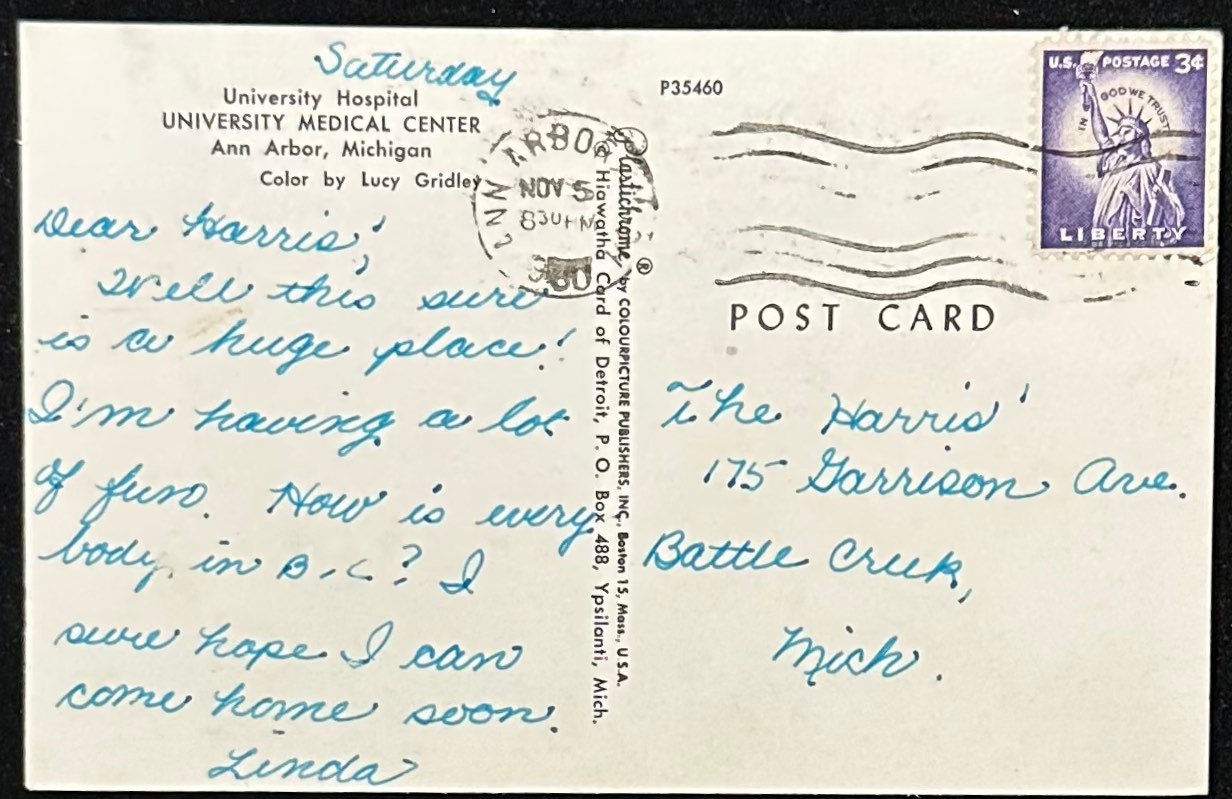 Saturday
University Hospital
UNIVERSITY MEDICAL CENTER
Ann Arbor, Michigan
Color by Lucy Gridley
Dear Harris',
Well this sure
is a huge place!
I'm having a lot
of fun. How is every
body in B.C.? I
sure hope I can
come home soon.
Linda
ANN ARBO
NOV 5
830 PM
1960
Plastichrome® by COLOURPICTURE PUBLISHERS, INC., Boston 15, Mass., U.S.A.
@ Hiawatha Card of Detroit, P. O. Box 488, Ypsilanti, Mich.
P35460
U.S. POSTAGE 3¢
IN GOD WE TRUST
LIBERTY
POST CARD
The Harris'
175 Garrison Ave.
Battle Creek,
Mich.